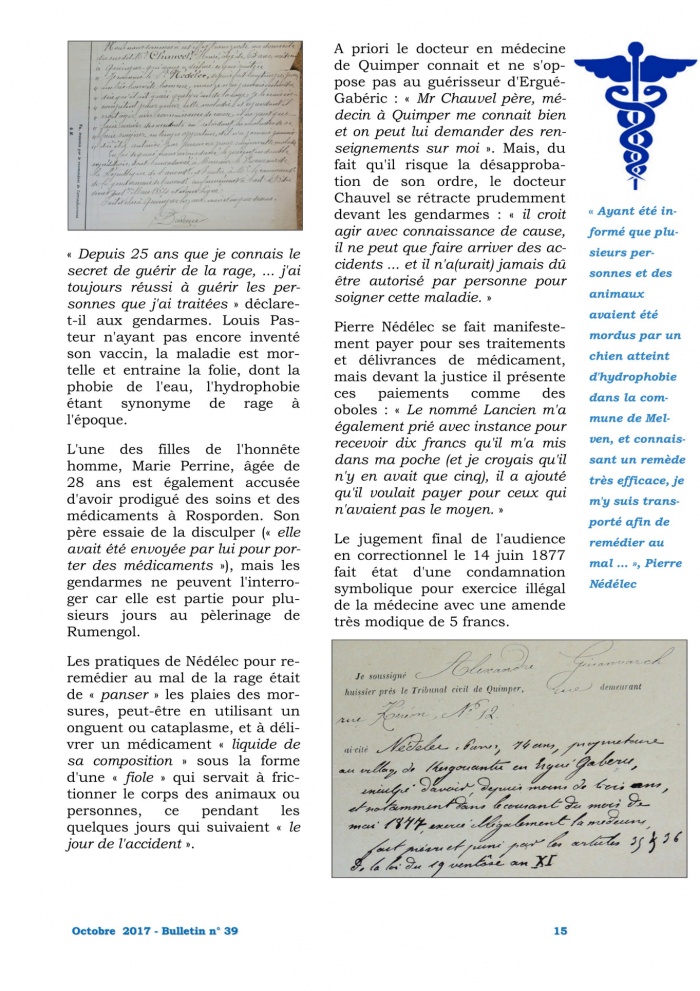 Chauvel
Nédélec
« Depuis 25 ans que je connais le
secret de guérir de la rage, ... j'ai
toujours réussi à guérir les per-
sonnes que j'ai traitées » déclare-
t-il aux gendarmes. Louis Pas-
teur n'ayant pas encore inventé
son vaccin, la maladie est mor-
telle et entraine la folie, dont la
phobie de l'eau, l'hydrophobie
étant synonyme de rage à
l'époque.
L'une des filles de l'honnête
homme, Marie Perrine, âgée de
28 ans est également accusée
d'avoir prodigué des soins et des
médicaments à Rosporden. Son
père essaie de la disculper (« elle
avait été envoyée par lui pour por-
ter des médicaments »), mais les
gendarmes ne peuvent l'interro-
ger car elle est partie pour plu-
sieurs jours au pèlerinage de
Rumengol.
Les pratiques de Nédélec pour re-
remédier au mal de la rage était
de « panser » les plaies des mor-
sures, peut-être en utilisant un
onguent ou cataplasme, et à déli-
vrer un médicament « liquide de
sa composition » sous la forme
d'une « fiole » qui servait à fric-
tionner le corps des animaux ou
personnes, ce pendant les
quelques jours qui suivaient « le
jour de l'accident ».
A priori le docteur en médecine
de Quimper connait et ne s'op-
pose pas au guérisseur d'Ergué-
Gabéric : « Mr Chauvel père, mé-
decin à Quimper me connait bien
et on peut lui demander des ren-
seignements sur moi ». Mais, du
fait qu'il risque la désapproba-
tion de son ordre, le docteur
Chauvel se rétracte prudemment
devant les gendarmes : « il croit
agir avec connaissance de cause,
il ne peut que faire arriver des ac-
cidents ... et il n'a(urait) jamais dû
être autorisé par personne pour
soigner cette maladie. »
Pierre Nédélec se fait manifeste-
ment payer pour ses traitements
et délivrances de médicament,
mais devant la justice il présente
ces paiements comme des
oboles : « Le nommé Lancien m'a
également prié avec instance pour
recevoir dix francs qu'il m'a mis
dans ma poche (et je croyais qu'il
n'y en avait que cinq), il a ajouté
qu'il voulait payer pour ceux qui
n'avaient pas le moyen. »
Le jugement final de l'audience
en correctionnel le 14 juin 1877
fait état d'une condamnation
symbolique pour exercice illégal
de la médecine avec une amende
très modique de 5 francs.
Je soussigné Alexandre
huissier près le Tribunal civil de Quimper, rue demeurant
rue Kéréon, N° 12
ai cité Nédélec, Pierre, 74 ans, propriétaire
au village de en Ergué Gabéric,
inculpé d'avoir, depuis moins de trois ans,
et notamment dans le courant du mois de
mai 1877 exercé illégalement la médecine,
fait prévu et puni par les articles 35 & 36
de la loi du 19 ventôse an XI
« Ayant été in-
formé que plu-
sieurs per-
sonnes et des
animaux
avaient été
mordus par un
chien atteint
d'hydrophobie
dans la com-
mune de Mel-
ven, et connais-
sant un remède
très efficace, je
m'y suis trans-
porté afin de
remédier au
mal ... », Pierre
Nédélec
Octobre 2017 - Bulletin n° 39 15